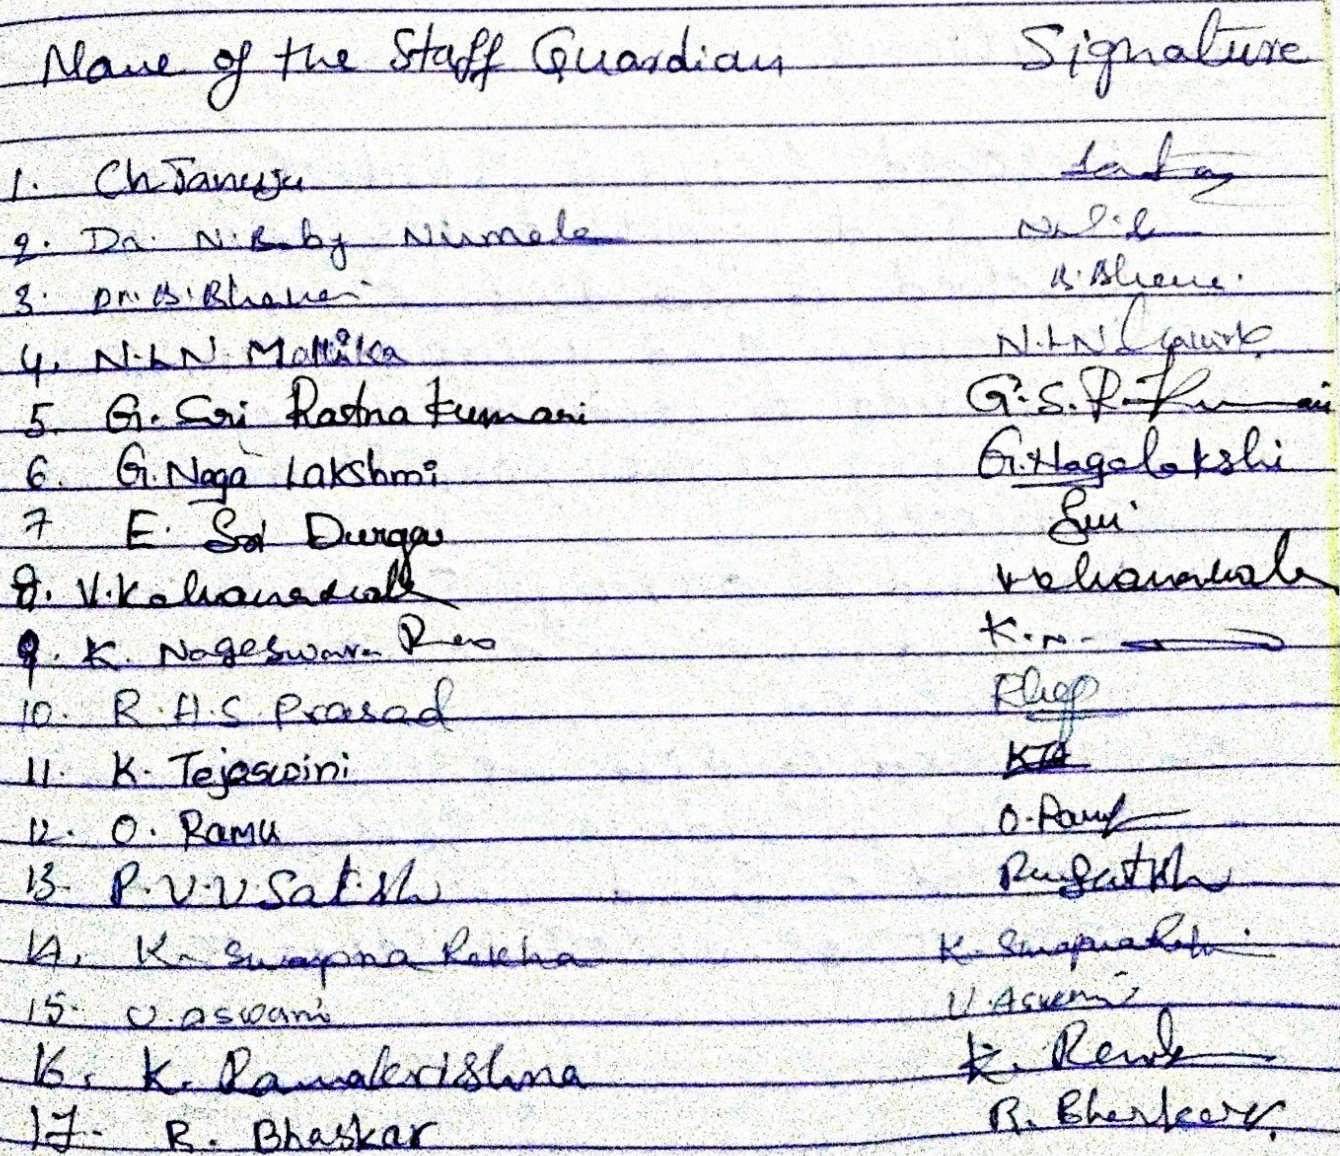 Name of the Staff Guardian Signature
1. Ch Tanuja
2. Dr. N. Baby Nirmala
3. Dr. B. Bhavani B. Bhavani
4. N.L.N. Mallika N.L.N
5. G. Sri Ratna Kumari G.S.R. Kumari
6. G. Naga Lakshmi G. Nagalakshi
7 E. Sri Durga Sri
8. V.
9. K. Nageswara Rao K.N.
10. R.H.S. Prasad
11. K. Tejaswini KTA
12. O. Ramu O. Ramu
13. P.V.V. Satish
14. K. Swapna Rekha K. Swapna Rekha
15. U. Aswani U. Aswani
16. K. Ramakrishna K.
17. R. Bhaskar R. Bhaskar